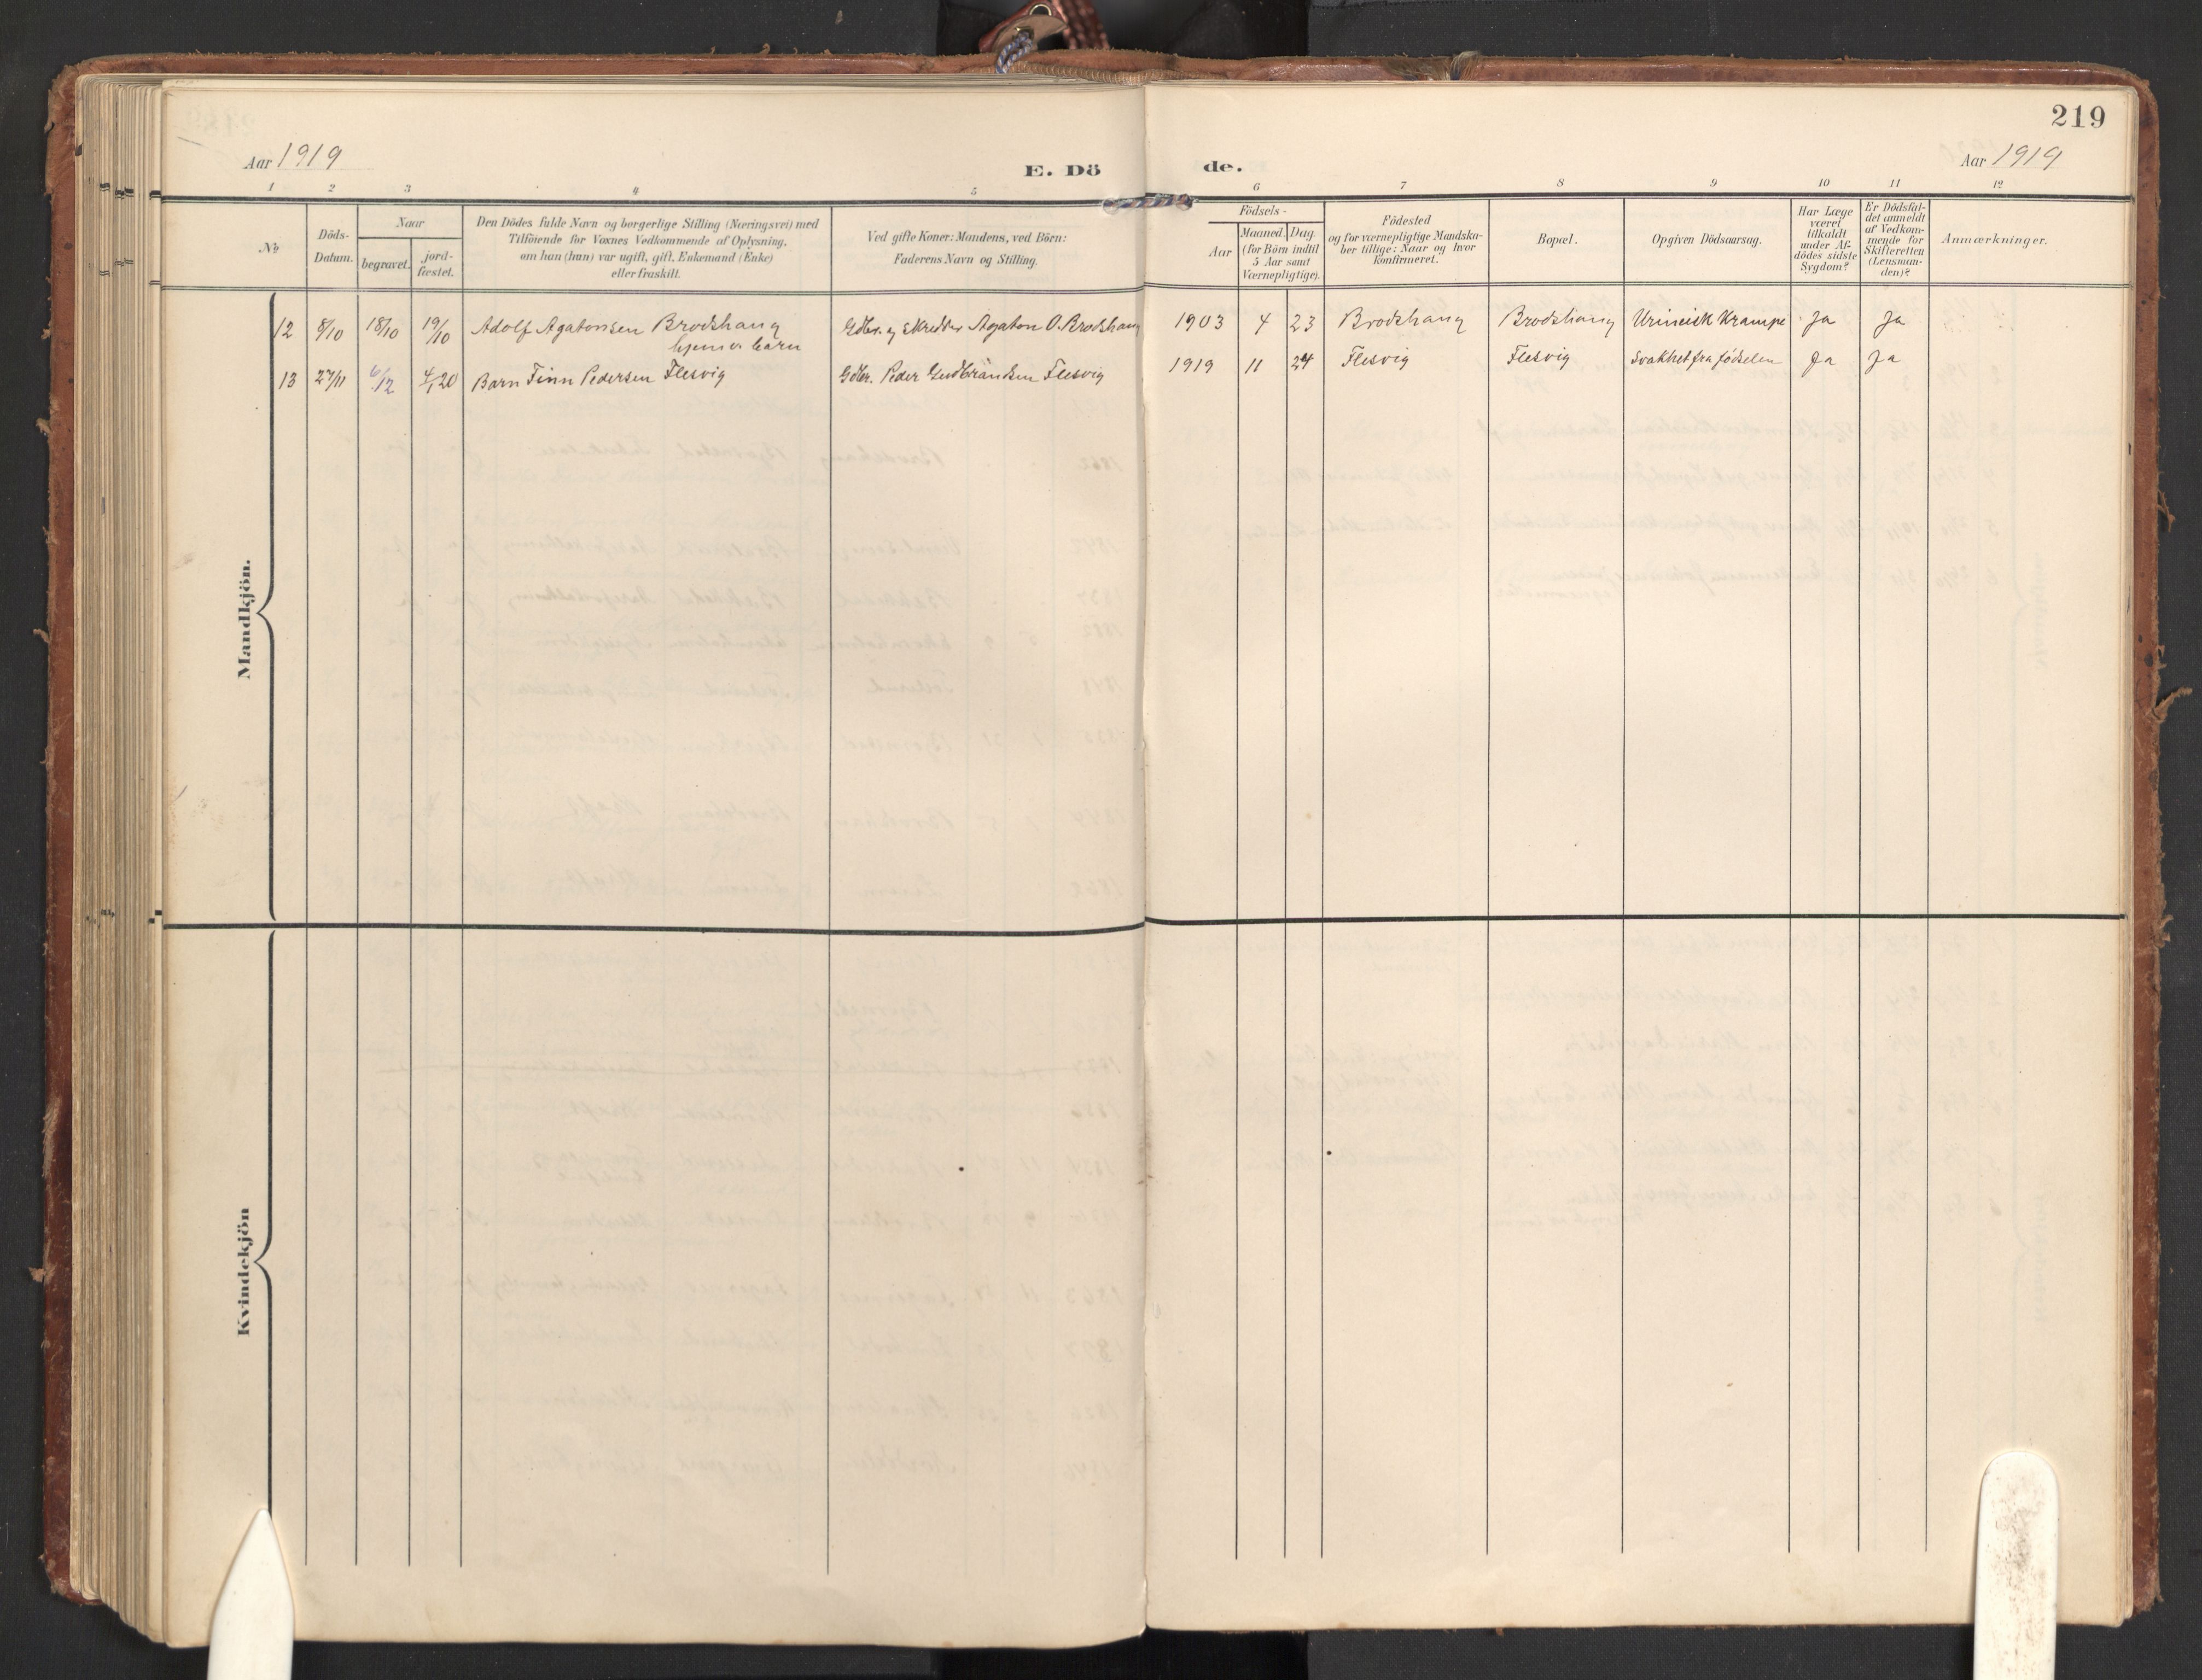 219
Aar 1919
E. Dö de.
Aar 1919
1 2 3 4 5 6 7 8 9 10 11 12
No
Döds-Datum.
Naar
begravet.
jord-fæstet.
Den Dödes fulde Navn og borgerlige Stilling (Næringsvei) med
Tilföiende for Voxnes Vedkommende af Oplysning,
om han (hun) var ugift, gift, Enkemand (Enke)
eller fraskilt.
Ved gifte Koner: Mandens, ved Börn:
Faderens Navn og Stilling.
Födsels-
Aar
Maaned. Dag.
(for Börn indtil
5 Aar samt
Værnepligtige).
Födested
og for værnepligtige Mandska-
ber tillige: Naar og hvor
konfirmeret.
Bopæl.
Opgiven Dödsaarsag.
Har Læge
været
tilkaldt
under Af-
dödes sidste
Sygdom?
Er Dödsfal-
det anmeldt
af Vedkom-
mende for
Skifteretten
(Lensman-
den)?
Anmærkninger.
Mandkjön.
12 8/10 18/10 19/10 Adolf Agatonsen Brodshaug Gdbr. og Skredder Agaton O. Brodshaug 1903 4 23 Brodshaug Brodshaug Urineisk Krampe Ja Ja
hjemv. barn
13 27/11 6/12 4/1 20 Barn Finn Pedersen Flesvig Gdbr. Peder Gudbrandsen Flesvig 1919 11 24 Flesvig Flesvig Svakhet fra fødselen Ja Ja
Kvindekjön